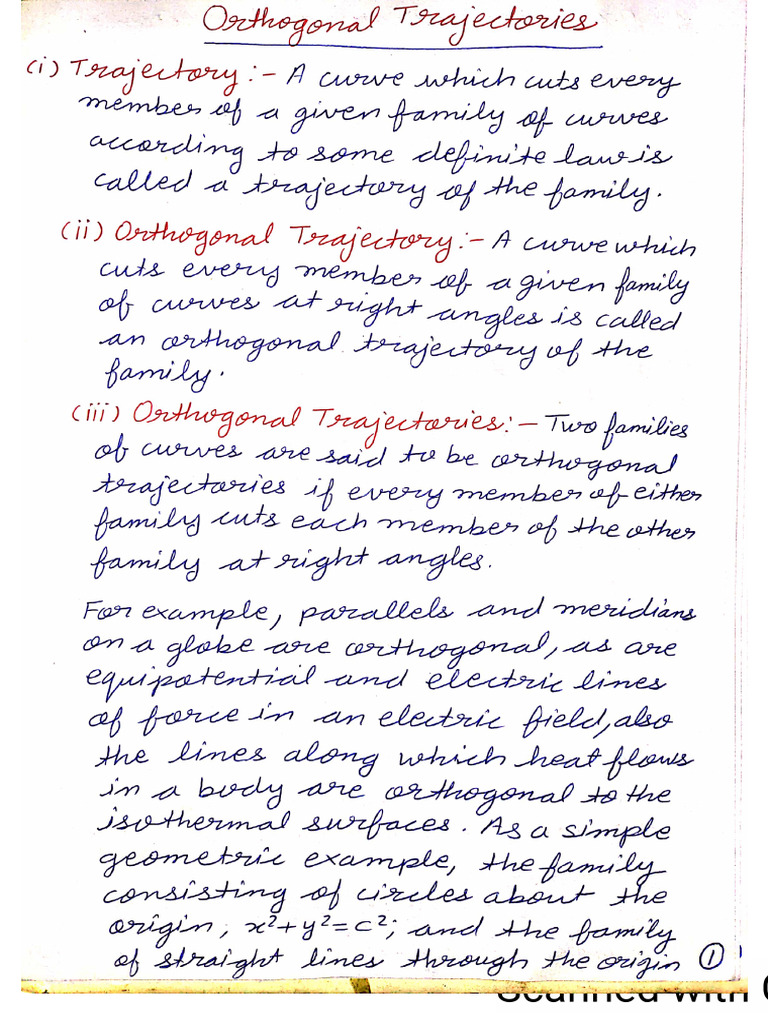 Orthogonal Trajectories
(i) Trajectory :- A curve which cuts every
member of a given family of curves
according to some definite law is
called a trajectory of the family.
(ii) Orthogonal Trajectory :- A curve which
cuts every member of a given family
of curves at right angles is called
an orthogonal trajectory of the
family.
(iii) Orthogonal Trajectories :- Two families
of curves are said to be orthogonal
trajectories if every member of either
family cuts each member of the other
family at right angles.
For example, parallels and meridians
on a globe are orthogonal, as are
equipotential and electric lines
of force in an electric field, also
the lines along which heat flows
in a body are orthogonal to the
isothermal surfaces. As a simple
geometric example, the family
consisting of circles about the
origin, x²+y²=c²; and the family
of straight lines through the origin ①
Scanned with